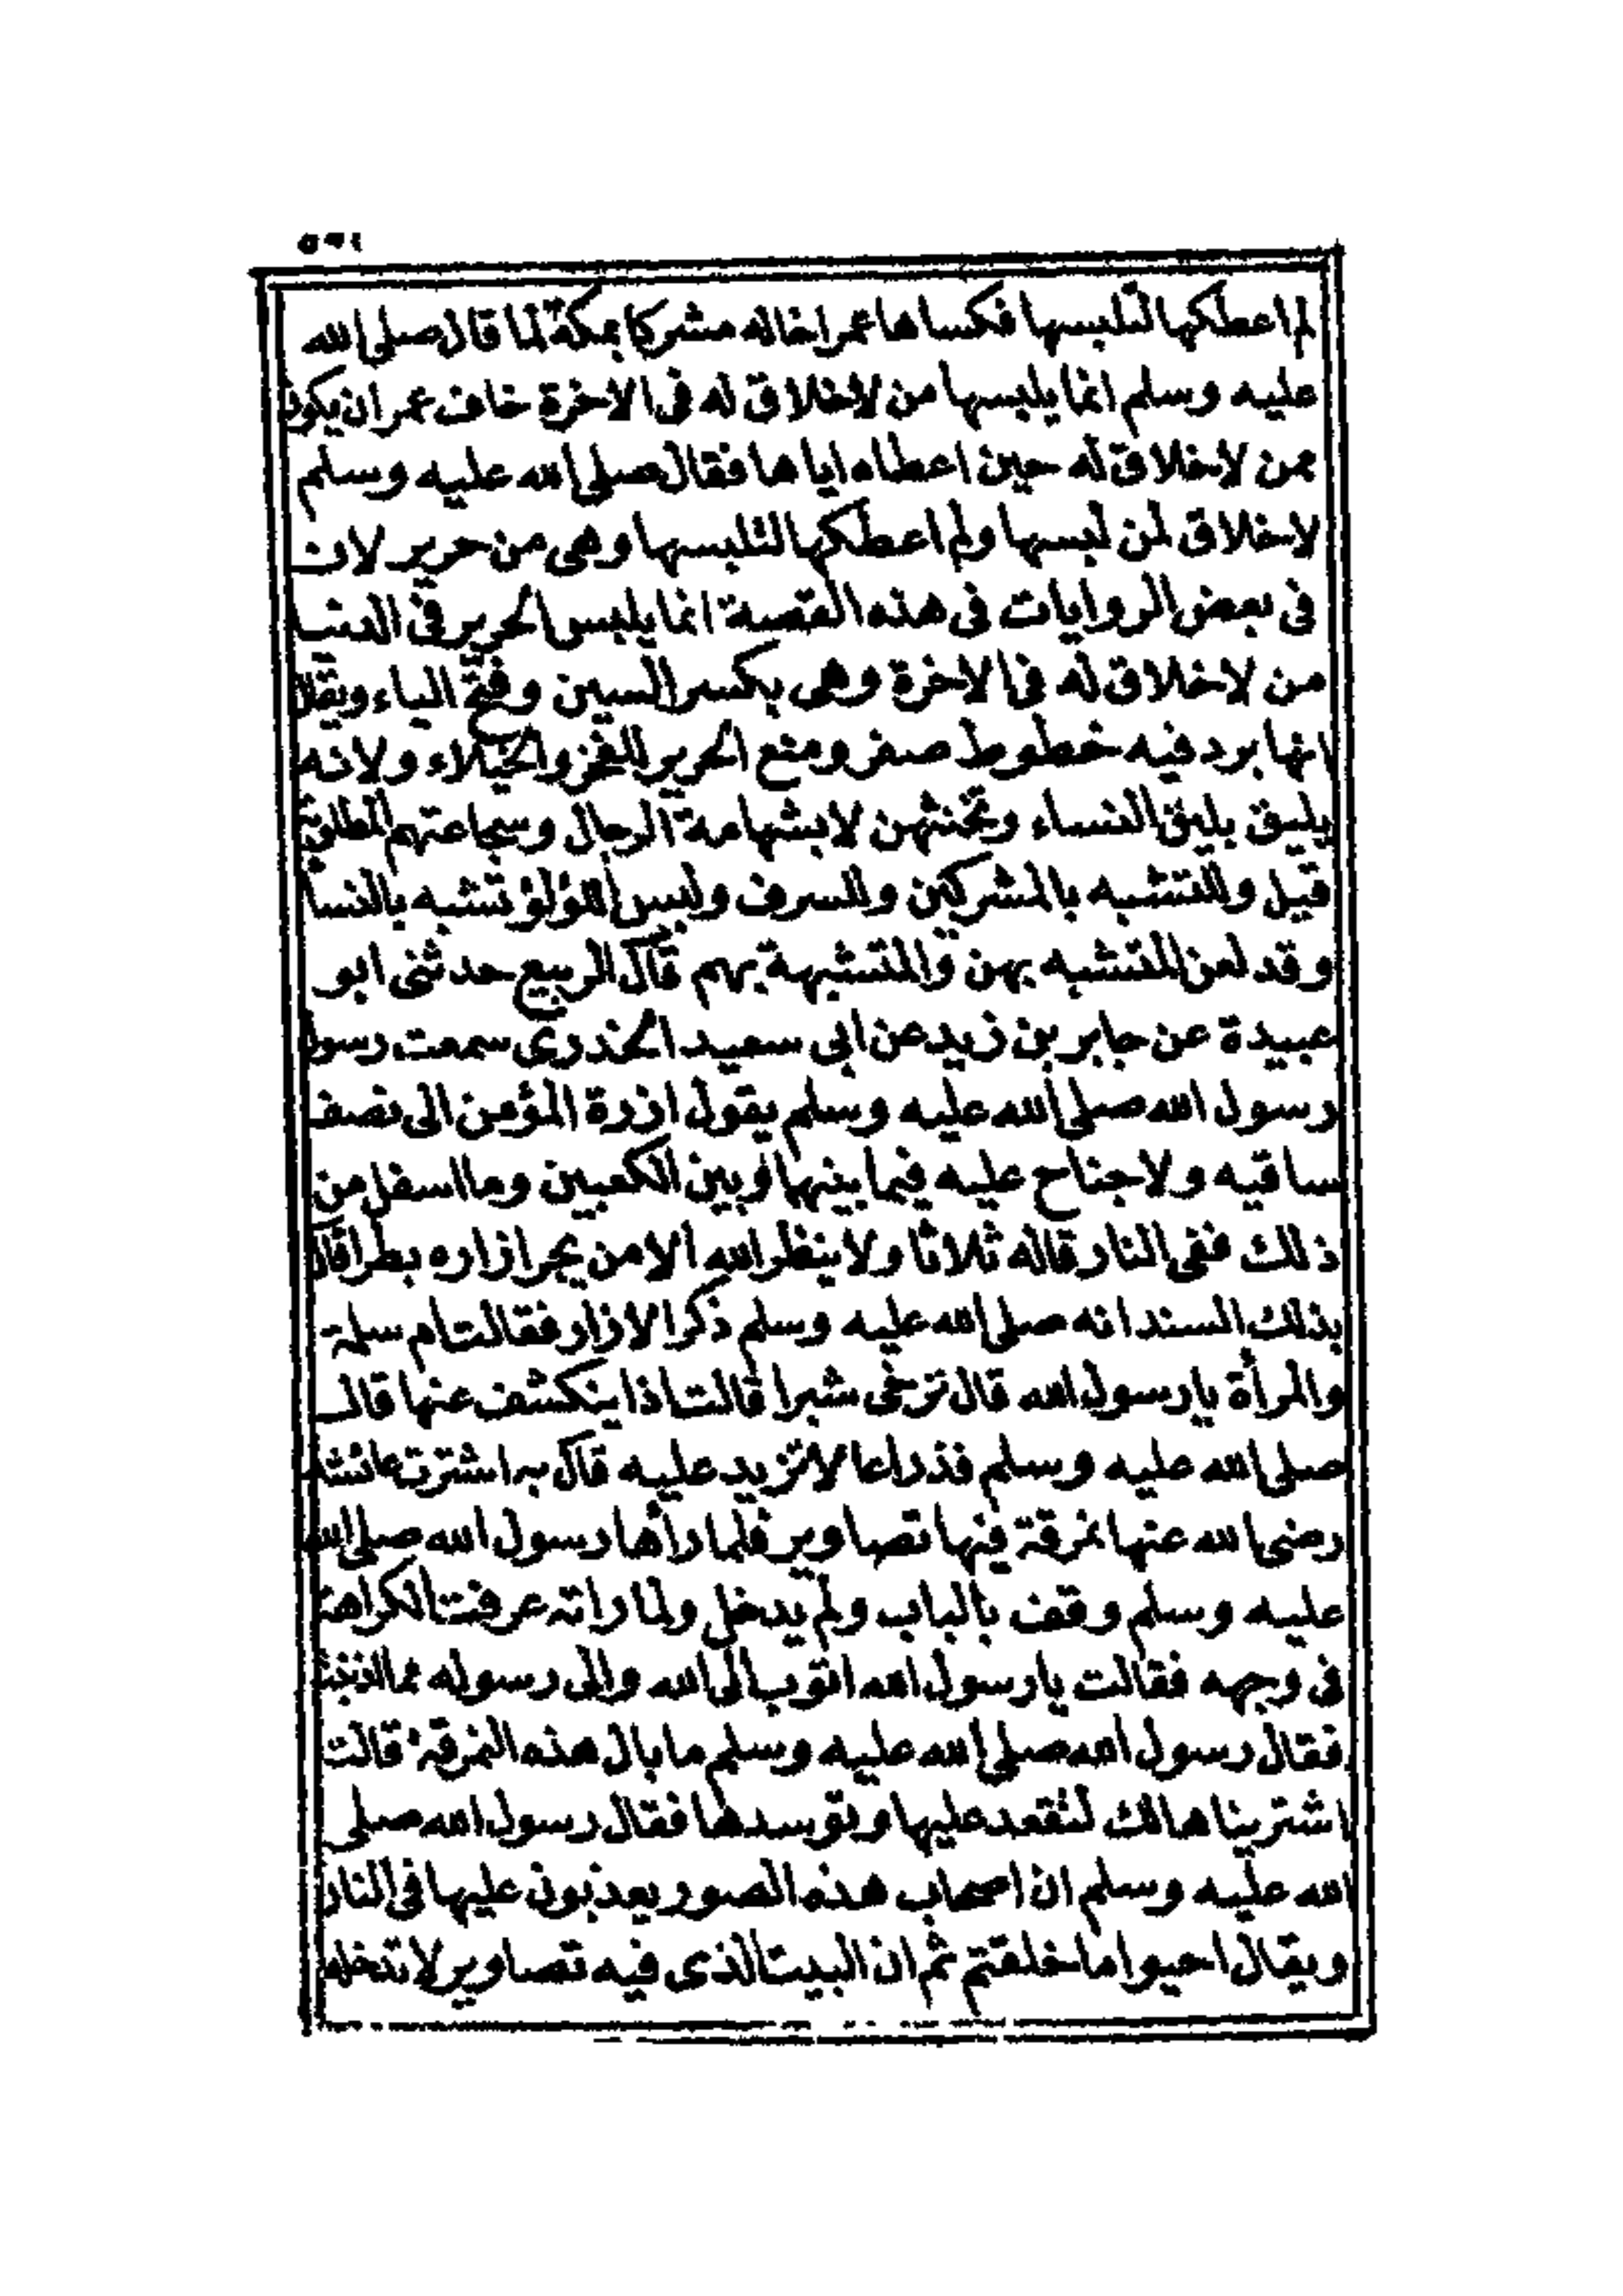 لم اعطكها لتلبسها فكساها عمر اخا له مشركا بمكة لما قال صلى الله
عليه وسلم انما يلبسها من لا خلاق له فى الاخرة خاف عمر ان يكون
ممن لا خلاق له حين اعطاه اياها فقال صلى الله عليه وسلم
لا خلاق لمن لبسها ولم اعطكها لتلبسها وهى من حرير لان
فى بعض الروايات فى هذه القصة انما يلبس الحرير فى الدنيا
من لا خلاق له فى الاخرة وهى بكسر السين وفتح الياء ويقال
انها برد فيه خطوط صفر ومنع الحرير للفخر والخيلاء ولانه
يليق بليق النساء وتخنثهن لا بشهامة الرجال وشجاعتهم المطلوبة
قيل وللتشبه بالمشركين وللسرف ولبس اللؤلؤ تشبه بالنسا
وقد لعن المتشبه بهن والمتشبهة بهم قال الربيع حدثنى ابو
عبيدة عن جابر بن زيد عن ابى سعيد الخدرى سمعت رسول
رسول الله صلى الله عليه وسلم يقول ازرة المؤمن الى نصف
ساقيه ولا جناح عليه فيما بينها وبين الكعبين وما اسفل من
ذلك ففى النار قاله ثلاثا ولا ينظر الله الا من يجر ازاره بطرا قال
بذلك السند انه صلى الله عليه وسلم ذكر الازار فقالت ام سلمة
والمرأة يا رسول الله قال ترخى شبرا قالت اذا ينكشف عنها قال
صلى الله عليه وسلم فذراعا لا تزيد عليه قال به اشترت عائشة
رضى الله عنها نمرقة فيها تصاوير فلما رأها رسول الله صلى الله
عليه وسلم وقف بالباب ولم يدخل ولما راته عرفت الكراهة
فى وجهه فقالت يا رسول الله اتوب الى الله والى رسوله مما اذنبت
فقال رسول الله صلى الله عليه وسلم ما بال هذه النمرقة قالت
اشتريناها لك لتقعد عليها وتوسدها فقال رسول الله صلى
الله عليه وسلم ان اصحاب هذه الصور يعذبون عليها فى النار
ويقال احيوا ما خلقتم ثم ان البيت الذى فيه تصاوير لا تدخله